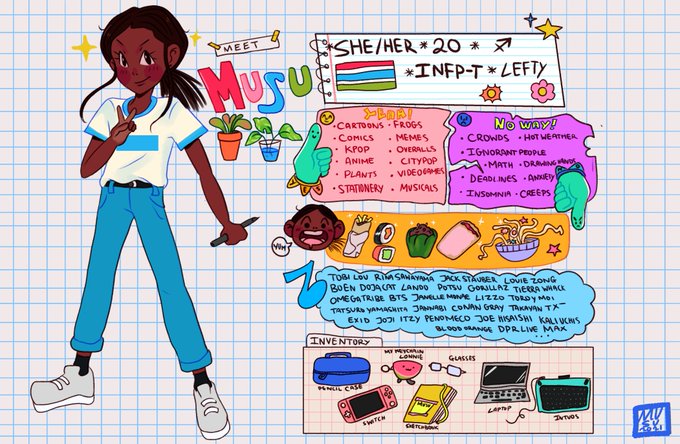 MEET
MUSU
*SHE/HER * 20 * ♐
*INFP-T * LEFTY
YEAH!
• CARTOONS • FROGS
• COMICS • MEMES
• KPOP • OVERALLS
• ANIME • CITYPOP
• PLANTS • VIDEOGAMES
• STATIONERY • MUSICALS
NO WAY!
• CROWDS • HOT WEATHER
• IGNORANT PEOPLE
• MATH • DRAWING HANDS
• DEADLINES • ANXIETY
• INSOMNIA • CREEPS
YUM
TOBI LOU RINA SAWAYAMA JACK STAUBER LOUIE ZONG
BOEN DOJACAT LANDO POTSU GORILLAZ TIERRA WHACK
OMEGATRIBE BTS JANELLE MONAE LIZZO TORO Y MOI
TATSURO YAMASHITA JANNABI CONAN GRAY TAKAYAN TX-
EXID JOJI ITZY PENOMECO JOE HISAISHI KALI UCHIS
BLOOD ORANGE DPR LIVE MAX ...
INVENTORY
PENCIL CASE
MY KEYCHAIN
LONNIE
GLASSES
SWITCH
SKETCHBOOK
LAPTOP
INTUOS